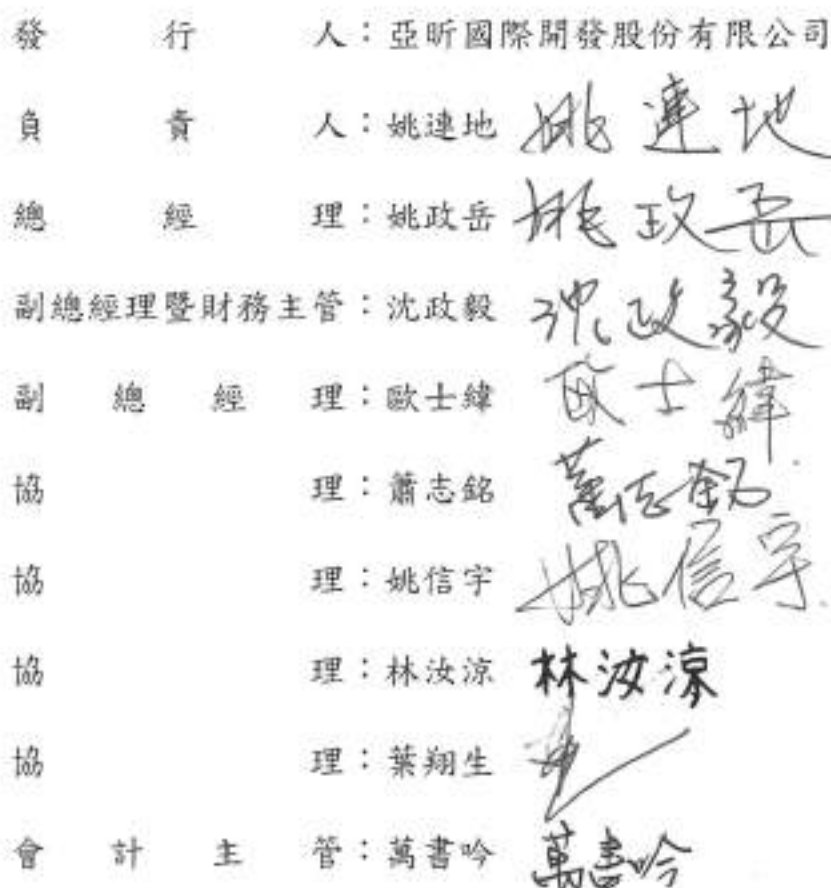 發行人：亞昕國際開發股份有限公司
負責人：姚連地 姚連地
總經理：姚政岳 姚政岳
副總經理暨財務主管：沈政毅 沈政毅
副總經理：歐士緯 歐士緯
協理：蕭志銘 蕭志銘
協理：姚信宇 姚信宇
協理：林汝涼 林汝涼
協理：葉翔生
會計主管：萬書吟 萬書吟